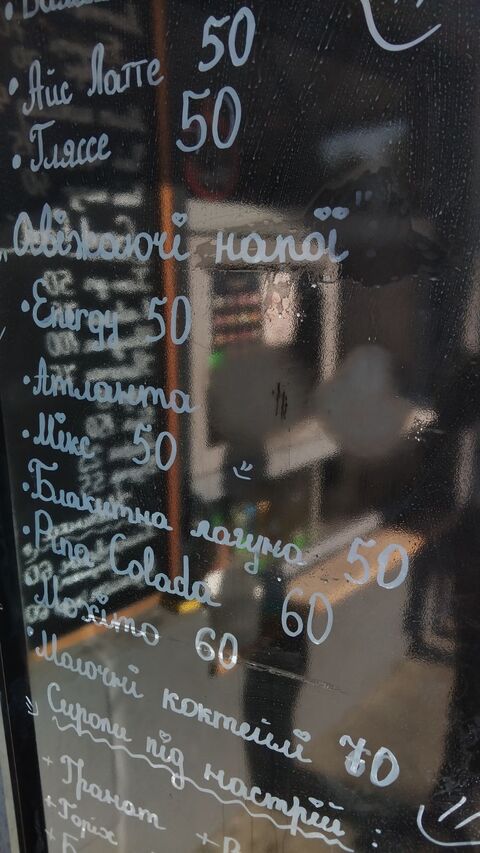 • Айс Латте 50
• Гляссе 50
„Освіжаючі напої"
• Energy 50
• Атланта
• Мікс 50
• Блакитна лагуна 50
• Pina Colada 60
Мохіто 60
• Молочні коктейлі 70
Сиропи під настрій :
+ Гранат +
+ Горіх
+